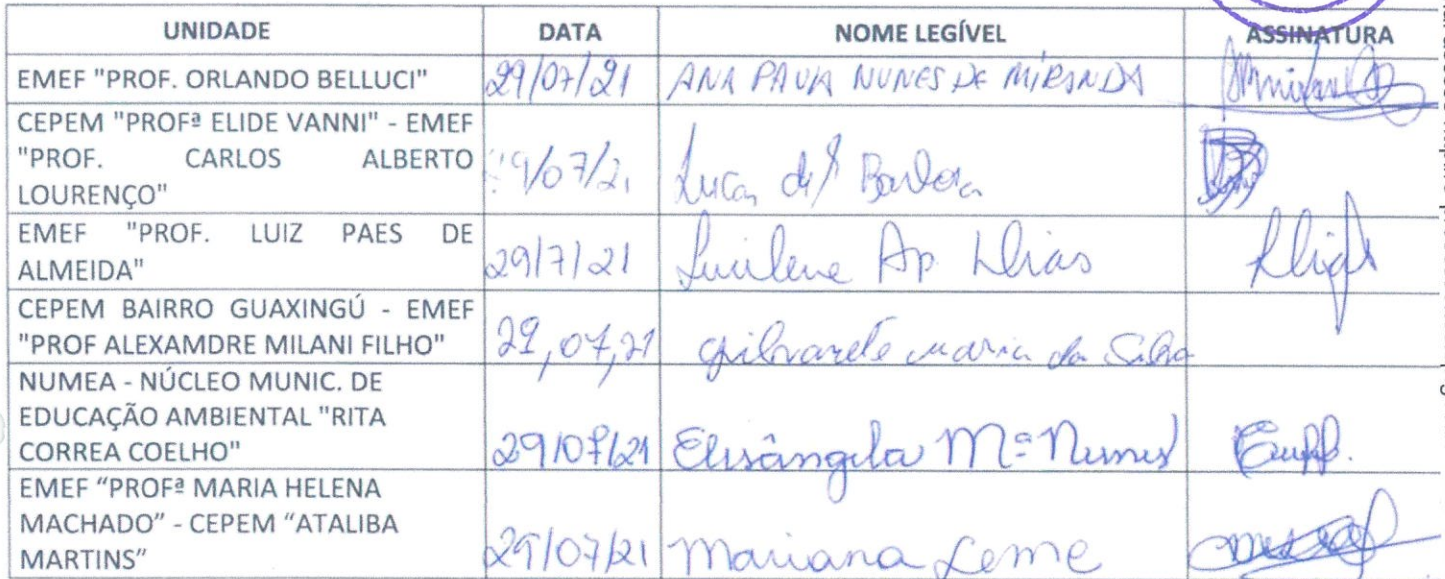 UNIDADE DATA NOME LEGÍVEL ASSINATURA
EMEF "PROF. ORLANDO BELLUCI" 29/07/21 ANA PAULA NUNES DE MIRANDA
CEPEM "PROFª ELIDE VANNI" - EMEF
"PROF. CARLOS ALBERTO
LOURENÇO" 29/07/21 Lucas Barbosa
EMEF "PROF. LUIZ PAES DE
ALMEIDA" 29/7/21 Lucilene Ap Dias
CEPEM BAIRRO GUAXINGÚ - EMEF
"PROF ALEXAMDRE MILANI FILHO" 29,07,21 maria da Silva
NUMEA - NÚCLEO MUNIC. DE
EDUCAÇÃO AMBIENTAL "RITA
CORREA COELHO" 29/07/21 Elisângela Mª Nunes
EMEF “PROFª MARIA HELENA
MACHADO” - CEPEM “ATALIBA
MARTINS” 29/07/21 Mariana Leme